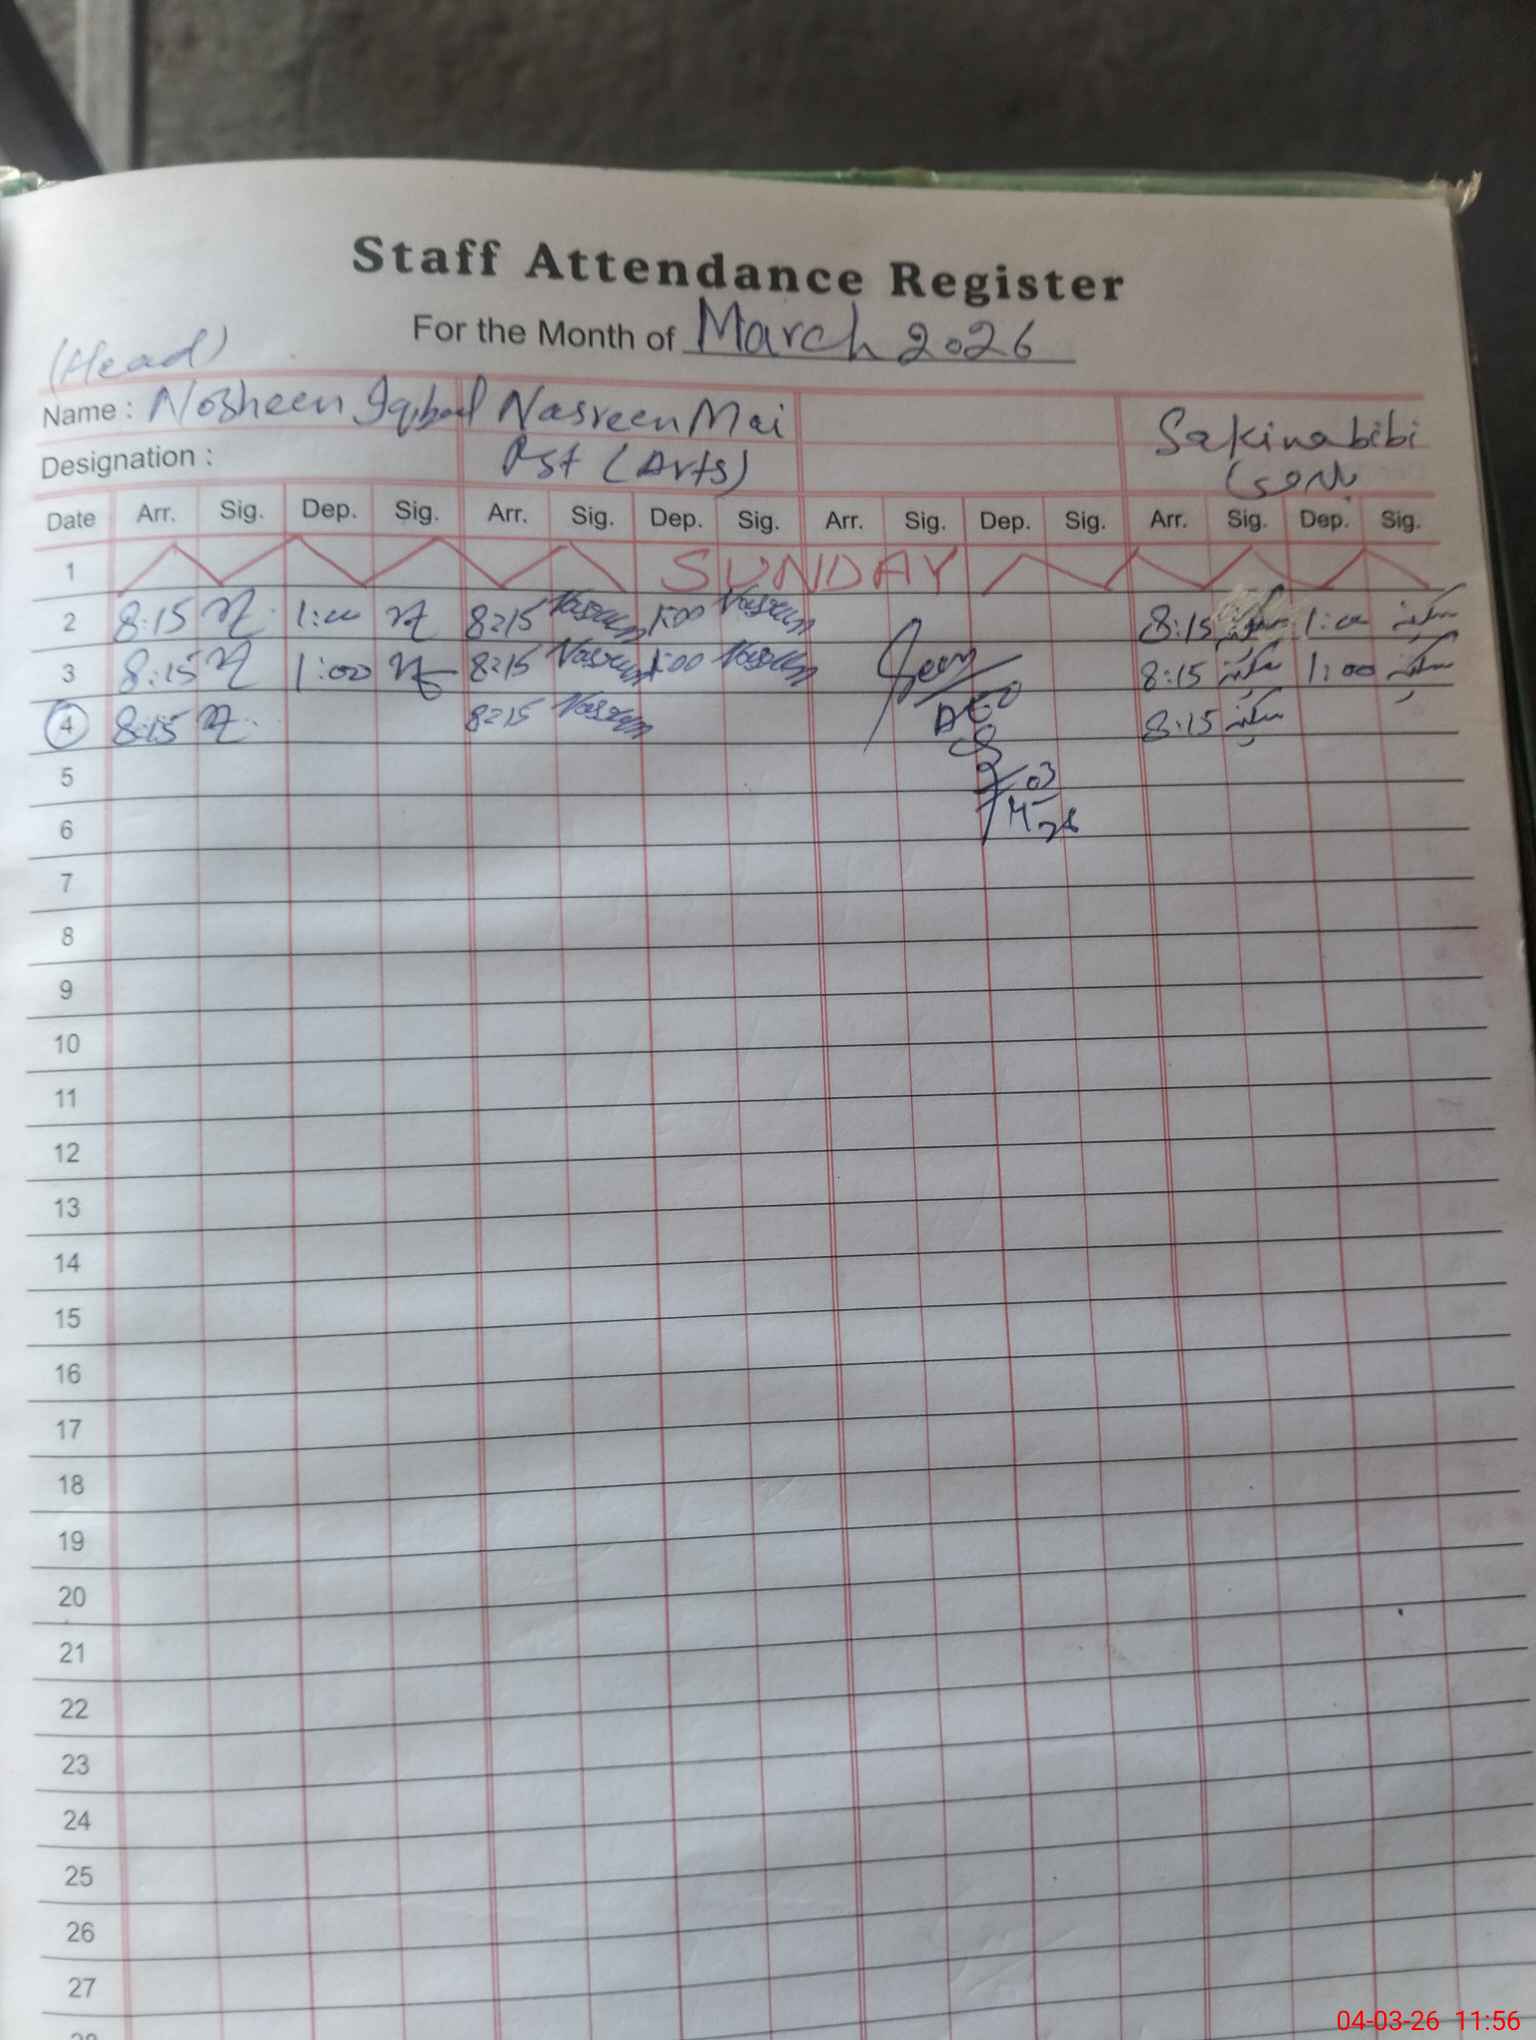 Staff Attendance Register
For the Month of March 2026
(Head)
Name : Nosheen Iqbal Nasreen Mai Sakina bibi
Designation : Pst (Arts)
Date Arr. Sig. Dep. Sig. Arr. Sig. Dep. Sig. Arr. Sig. Dep. Sig. Arr. Sig. Dep. Sig.
1 SUNDAY
2 8:15 1:00 8:15 Nasreen 1:00 Nasreen 8:15 سکینہ 1:00 سکینہ
3 8:15 1:00 8:15 Nasreen 1:00 Nasreen 8:15 سکینہ 1:00 سکینہ
4 8:15 8:15 Nasreen 8:15 سکینہ
DEO
5
03
6
7
8
9
10
11
12
13
14
15
16
17
18
19
20
21
22
23
24
25
26
27
04-03-26 11:56